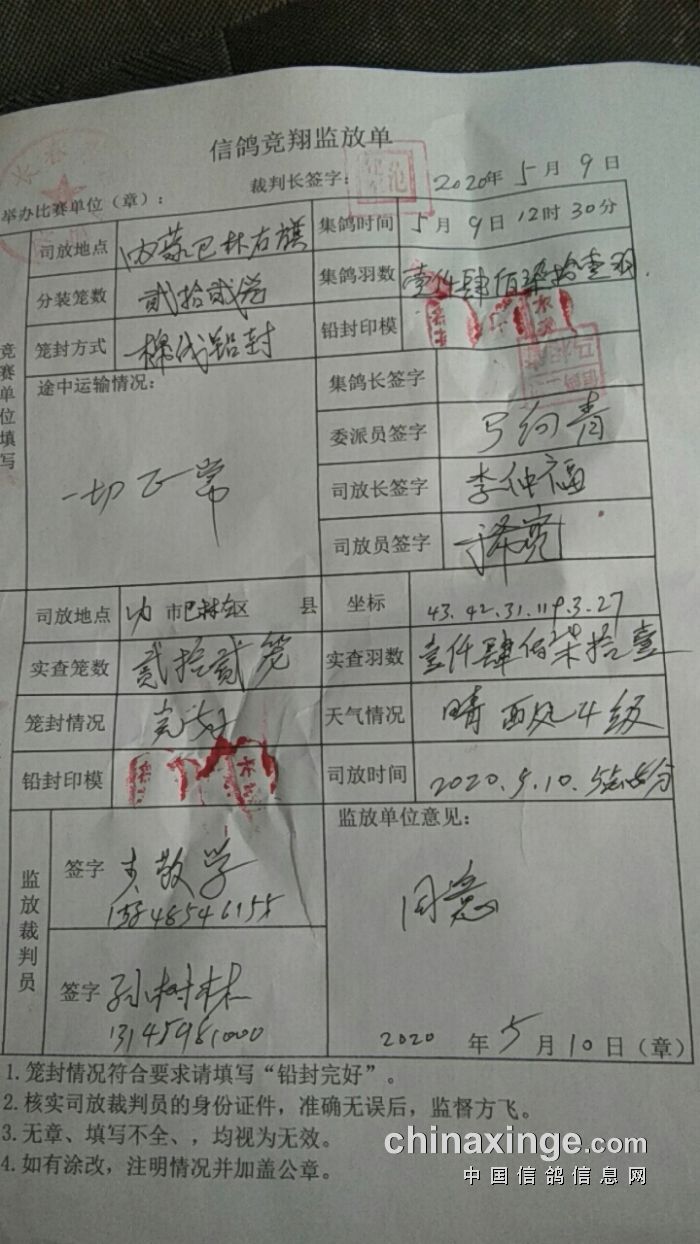 信鸽竞翔监放单
裁判长签字： 2020年 5 月 9 日
举办比赛单位（章）：
竞赛单位填写
司放地点 内蒙巴林右旗 集鸽时间 5月 9日 12时 30分
分装笼数 贰拾贰笼 集鸽羽数 壹仟肆佰柒拾壹羽
笼封方式 棉代铅封 铅封印模
途中运输情况： 集鸽长签字
一切正常
委派员签字
司放长签字 李仲福
司放员签字
司放地点 市 县 坐标 43.42.31.119.3.27
实查笼数 贰拾贰笼 实查羽数 壹仟肆佰柒拾壹
笼封情况 完好 天气情况 晴 西风4级
铅封印模 司放时间 2020.5.10.5点
监放裁判员
监放单位意见：
签字 敬学
同意
签字 孙树林
13145981000
2020 年 5 月 10 日（章）
1. 笼封情况符合要求请填写“铅封完好”。
2. 核实司放裁判员的身份证件，准确无误后，监督方飞。
3. 无章、填写不全、，均视为无效。
4. 如有涂改，注明情况并加盖公章。
chinaxinge.com
中国信鸽信息网